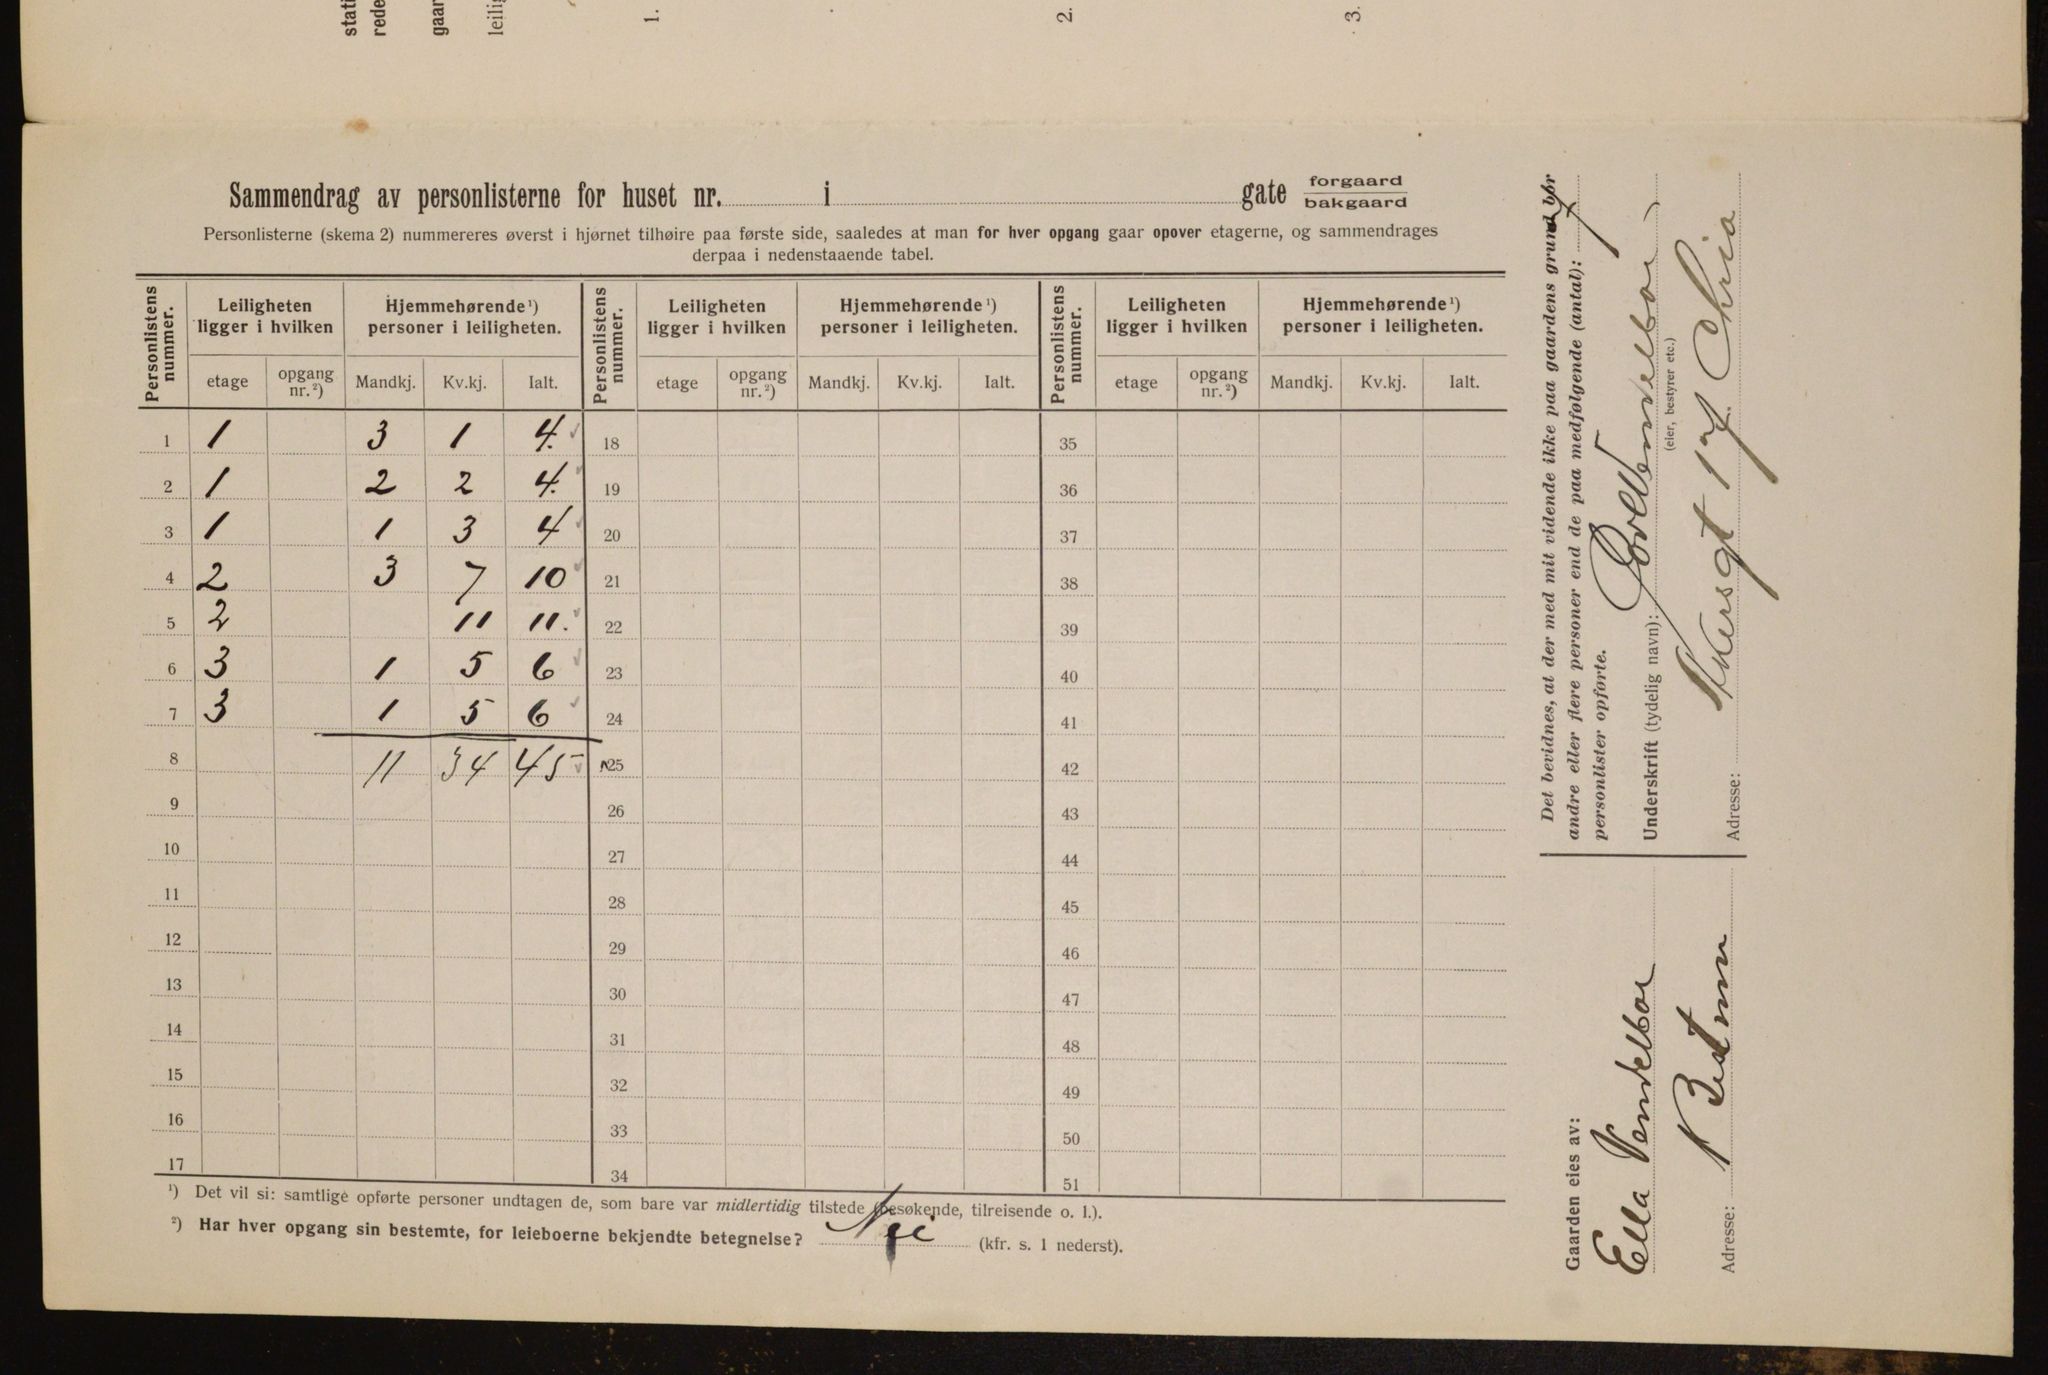 stati
rede
gaar
leilig
1.
2.
3.
Sammendrag av personlisterne for huset nr. i gate forgaard bakgaard
Personlisterne (skema 2) nummereres øverst i hjørnet tilhøire paa første side, saaledes at man for hver opgang gaar opover etagerne, og sammendrages
derpaa i nedenstaaende tabel.
Personlistens nummer. Leiligheten ligger i hvilken Hjemmehørende ¹) personer i leiligheten. Personlistens nummer. Leiligheten ligger i hvilken Hjemmehørende ¹) personer i leiligheten. Personlistens nummer. Leiligheten ligger i hvilken Hjemmehørende ¹) personer i leiligheten.
etage opgang nr. ²) Mandkj. Kv.kj. Ialt. etage opgang nr. ²) Mandkj. Kv.kj. Ialt. etage opgang nr. ²) Mandkj. Kv.kj. Ialt.
1 1 3 1 4. 18 35
2 1 2 2 4. 19 36
3 1 1 3 4 20 37
4 2 3 7 10 21 38
5 2 11 11. 22 39
6 3 1 5 6 23 40
7 3 1 5 6 24 41
8 11 34 45 25 42
9 26 43
10 27 44
11 28 45
12 29 46
13 30 47
14 31 48
15 32 49
16 33 50
17 34 51
¹) Det vil si: samtlige opførte personer undtagen de, som bare var midlertidig tilstede (besøkende, tilreisende o. l.).
²) Har hver opgang sin bestemte, for leieboerne bekjendte betegnelse? Nei (kfr. s. 1 nederst).
Det bevidnes, at der med mit vidende ikke paa gaardens grund bor
andre eller flere personer end de paa medfølgende (antal): 7
personlister opførte.
Underskrift (tydelig navn): Vendelboe
(eier, bestyrer etc.)
Adresse: 17 Chria
Gaarden eies av:
Ella Vendelboe
Adresse: